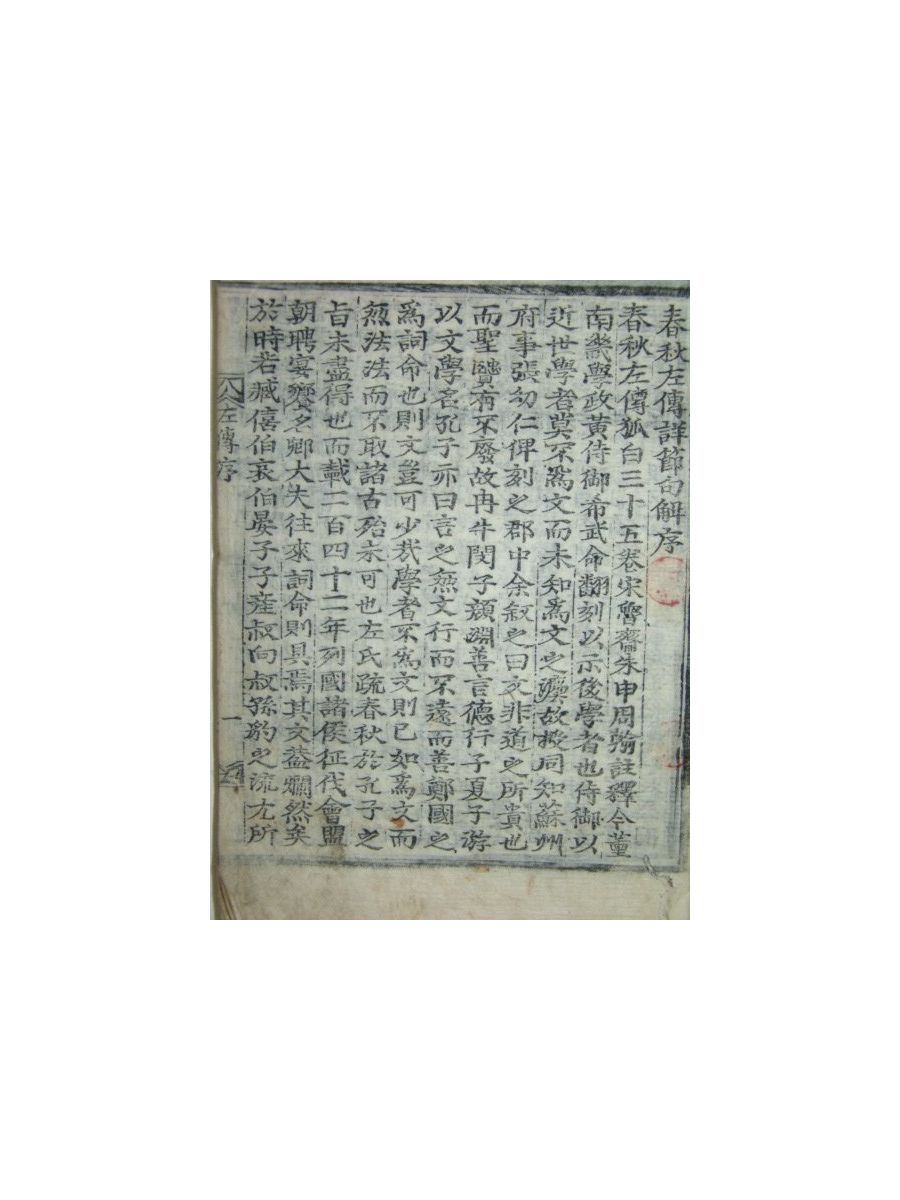 春秋左傳詳節句解序
春秋左傳狐白三十五卷宋魯齋朱申周翰註釋今董
南畿學政黃侍御希武命翻刻以示後學者也侍御以
近世學者莫不爲文而未知爲文之故授同知蘇州
府事張幼仁俾刻之郡中余叙之曰文非道之所貴也
而聖賢有不廢故冉牛閔子顔淵善言德行子夏子游
以文學名孔子亦曰言之無文行而不遠而善鄭國之
爲詞命也則文豈可少哉學者不爲文則已如爲文而
無法法而不取諸古殆未可也左氏疏春秋於孔子之
旨未盡得也而載二百四十二年列國諸侯征伐會盟
朝聘宴饗名卿大夫往來詞命則具焉其文蓋爛然矣
於時若臧僖伯哀伯晏子子產叔向叔孫豹之流尤所
左傳序
一